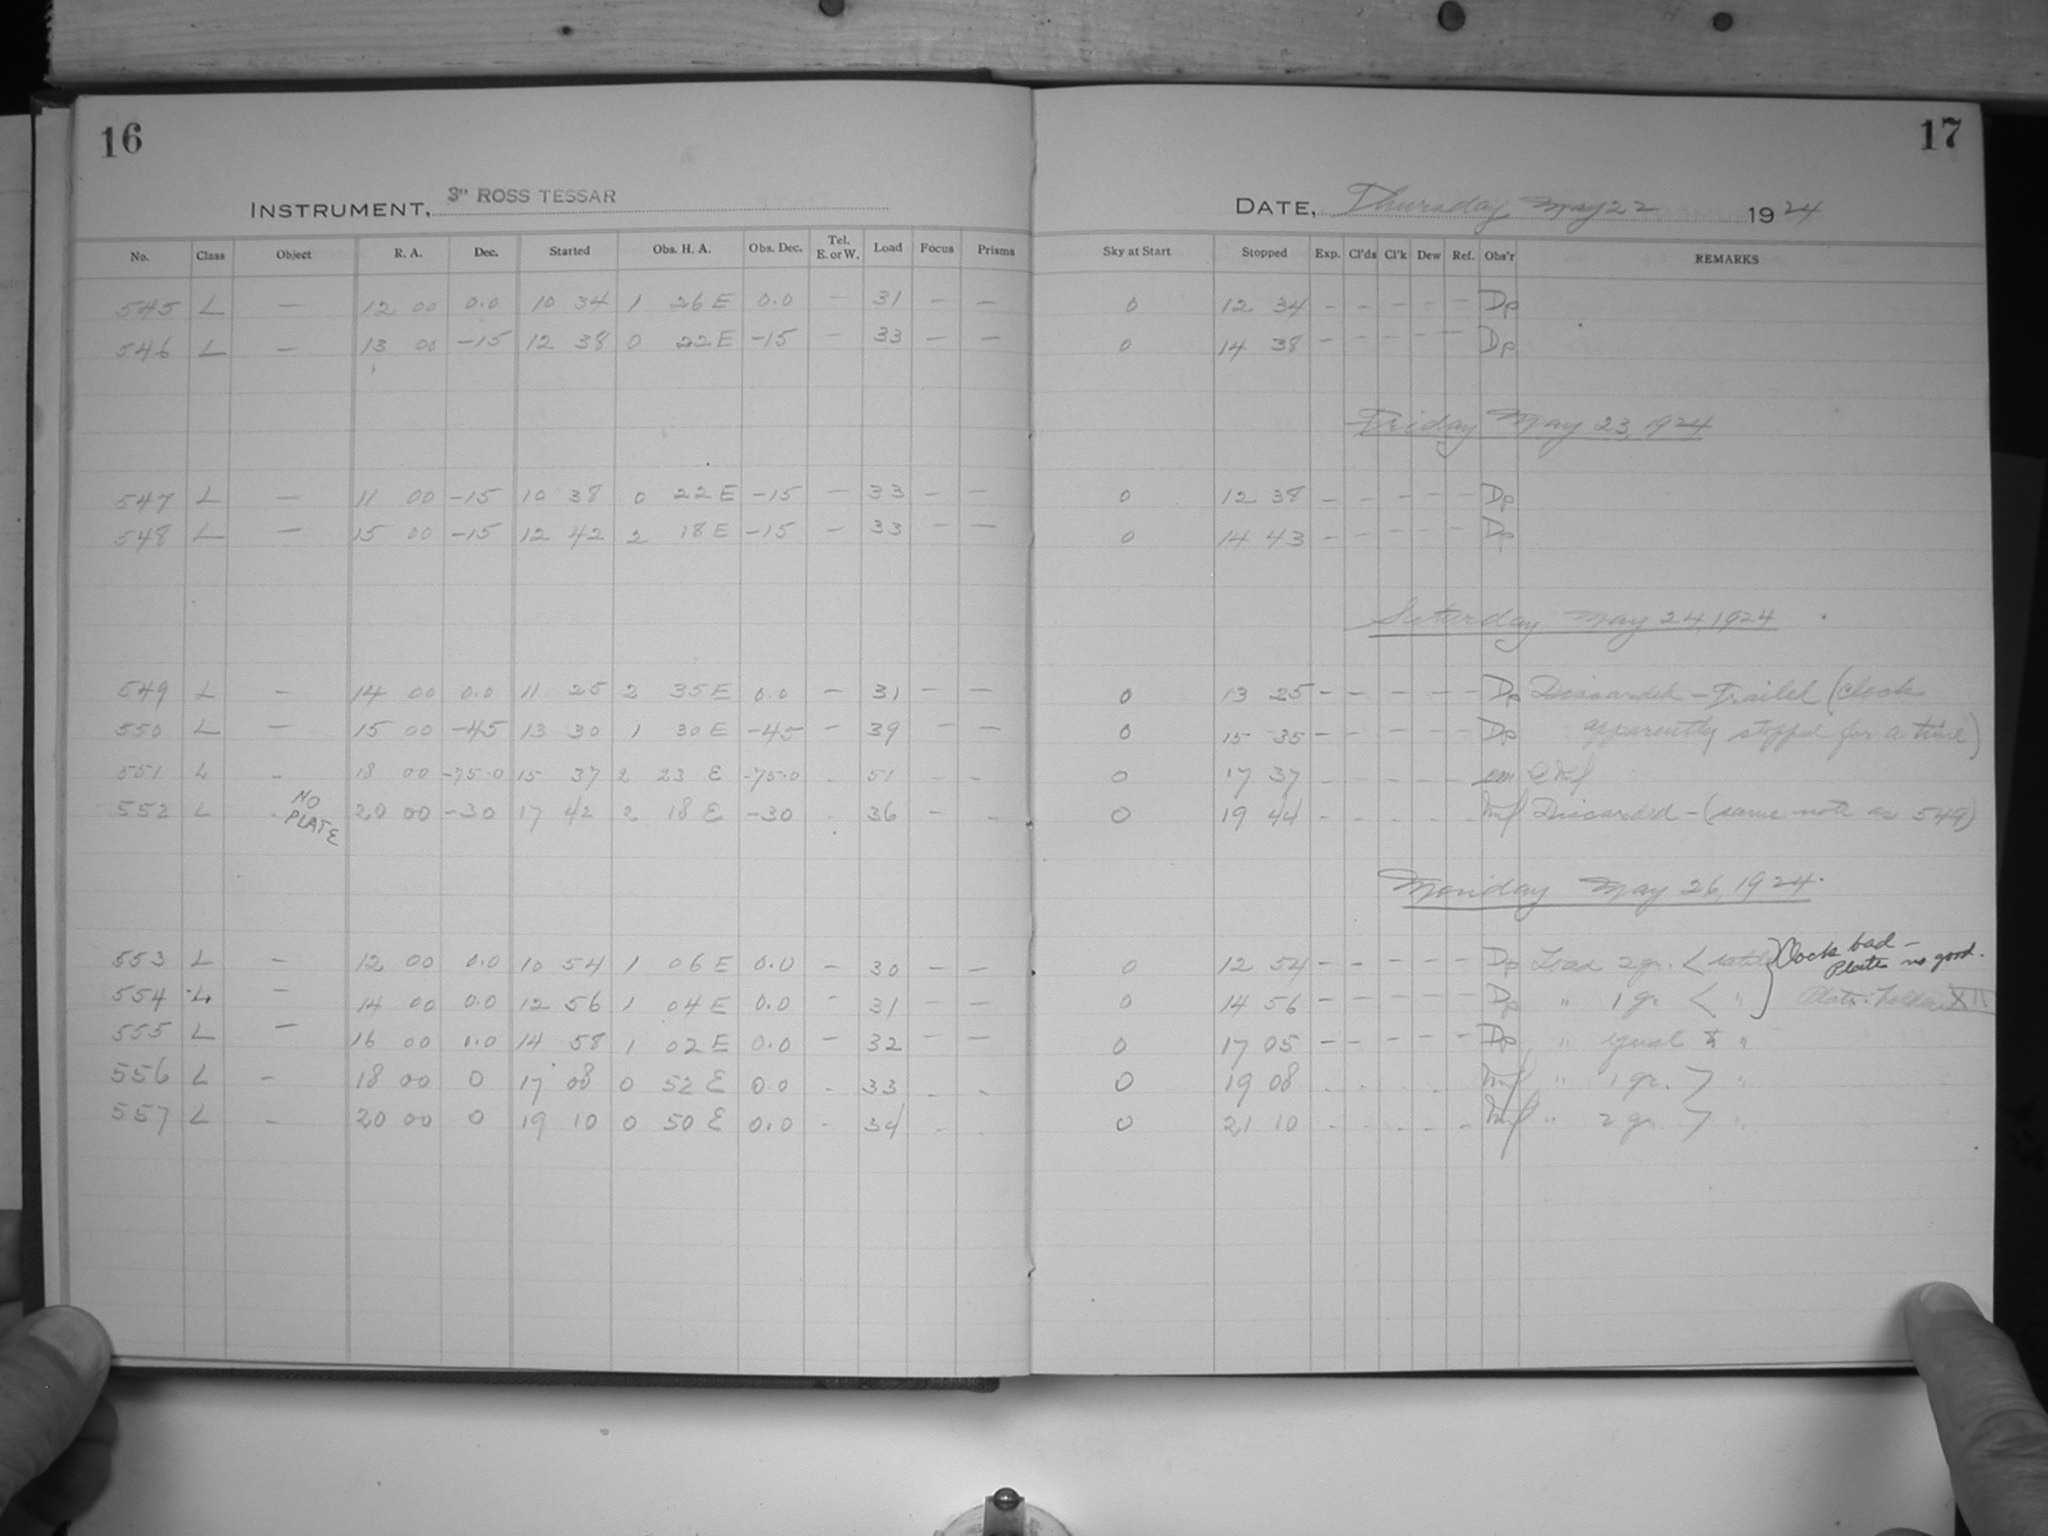 16
17
INSTRUMENT, 3" ROSS TESSAR
DATE, Thursday, May 22 1924
No. Class Object R. A. Dec. Started Obs. H. A. Obs. Dec. Tel. E. or W. Load Focus Prisms Sky at Start Stopped Exp. Cl'ds Cl'k Dew Ref. Obs'r REMARKS
545 L — 12 00 0.0 10 34 1 26 E 0.0 — 31 — — 0 12 34 — — — — — Dp
546 L — 13 00 -15 12 38 0 22 E -15 — 33 — — 0 14 38 — — — — — Dp
Friday May 23, 1924
547 L — 11 00 -15 10 38 0 22 E -15 — 33 — — 0 12 38 — — — — — Dp
548 L — 15 00 -15 12 42 2 18 E -15 — 33 — — 0 14 43 — — — — — Dp
Saturday May 24, 1924
549 L — 14 00 0.0 11 25 2 35 E 0.0 — 31 — — 0 13 25 — — — — — Dp Discarded - Trailed (clock
550 L — 15 00 -45 13 30 1 30 E -45 — 39 — — 0 15 35 — — — — — Dp apparently stopped for a time)
551 L - 18 00 -75.0 15 37 2 23 E -75.0 - 51 - - 0 17 37 - - - - - em
552 L - NO PLATE 20 00 -30 17 42 2 18 E -30 - 36 - - 0 19 44 - - - - - Discarded - (same note as 549)
Monday May 26, 1924.
553 L — 12 00 0.0 10 54 1 06 E 0.0 — 30 — — 0 12 54 — — — — — Dp Load 2 gr. < Clock bad -
Plate no good.
554 L — 14 00 0.0 12 56 1 04 E 0.0 — 31 — — 0 14 56 — — — — — Dp " 1 gr < " Plate holder XII
555 L — 16 00 0.0 14 58 1 02 E 0.0 — 32 — — 0 17 05 — — — — — Dp " equal to "
556 L - 18 00 0 17 08 0 52 E 0.0 - 33 - - 0 19 08 - - - - " 1 gr. > "
557 L - 20 00 0 19 10 0 50 E 0.0 - 34 - - 0 21 10 - - - - - " 2 gr. > "